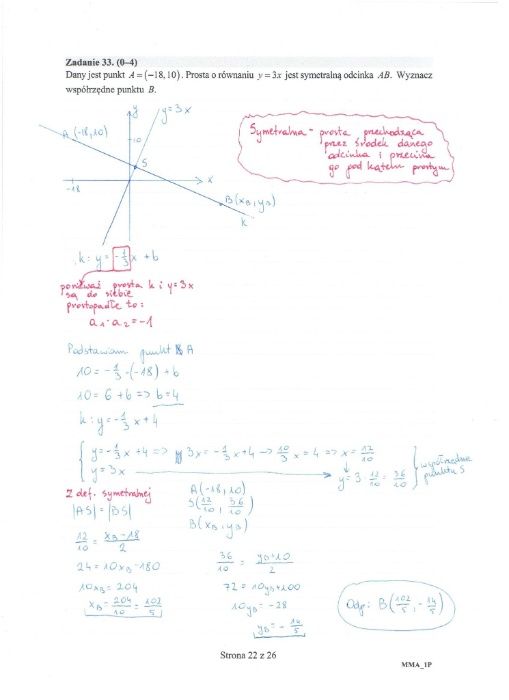 Zadanie 33. (0–4)
Dany jest punkt A = (−18, 10). Prosta o równaniu y = 3x jest symetralną odcinka AB. Wyznacz
współrzędne punktu B.
y
y=3x
A(-18,10)
10
S
-18
x
B(xB, yB)
k
Symetralna - prosta przechodząca
przez środek danego
odcinka i przecina
go pod kątem prostym
k: y = -1/3 x + b
ponieważ prosta k i y=3x
są do siebie
prostopadłe to:
a1·a2=-1
Podstawiam punkt A
10 = -1/3·(-18)+b
10 = 6+b => b=4
k: y=-1/3 x+4
{ y=-1/3 x+4 => 3x=-1/3 x+4 → 10/3 x = 4 => x = 12/10
y=3x → y=3·12/10=36/10
współrzędne
punktu S
Z def. symetralnej
|AS|=|BS|
A(-18,10)
S(12/10, 36/10)
B(xB, yB)
12/10 = (xB-18)/2
24=10xB-180
10xB=204
xB=204/10=102/5
36/10 = (yB+10)/2
72=10yB+100
10yB=-28
yB=-14/5
Odp: B(102/5, -14/5)
Strona 22 z 26
MMA_1P